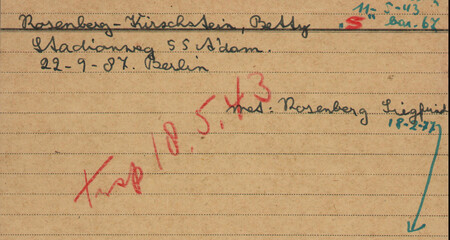 11-5-43
Rosenberg-Kirschstein, Betty
"S" bar. 67
Stadionweg 55 A'dam.
22-9-87. Berlin
met: Rosenberg Siegfried
18-2-77
trsp 18.5.43